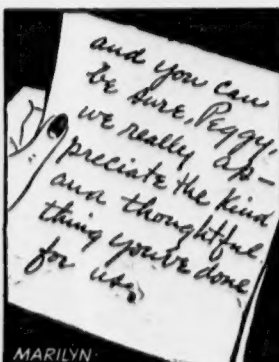 and you can
be sure, Peggy,
we really ap-
preciate the kind
and thoughtful
thing you've done
for us.
MARILYN